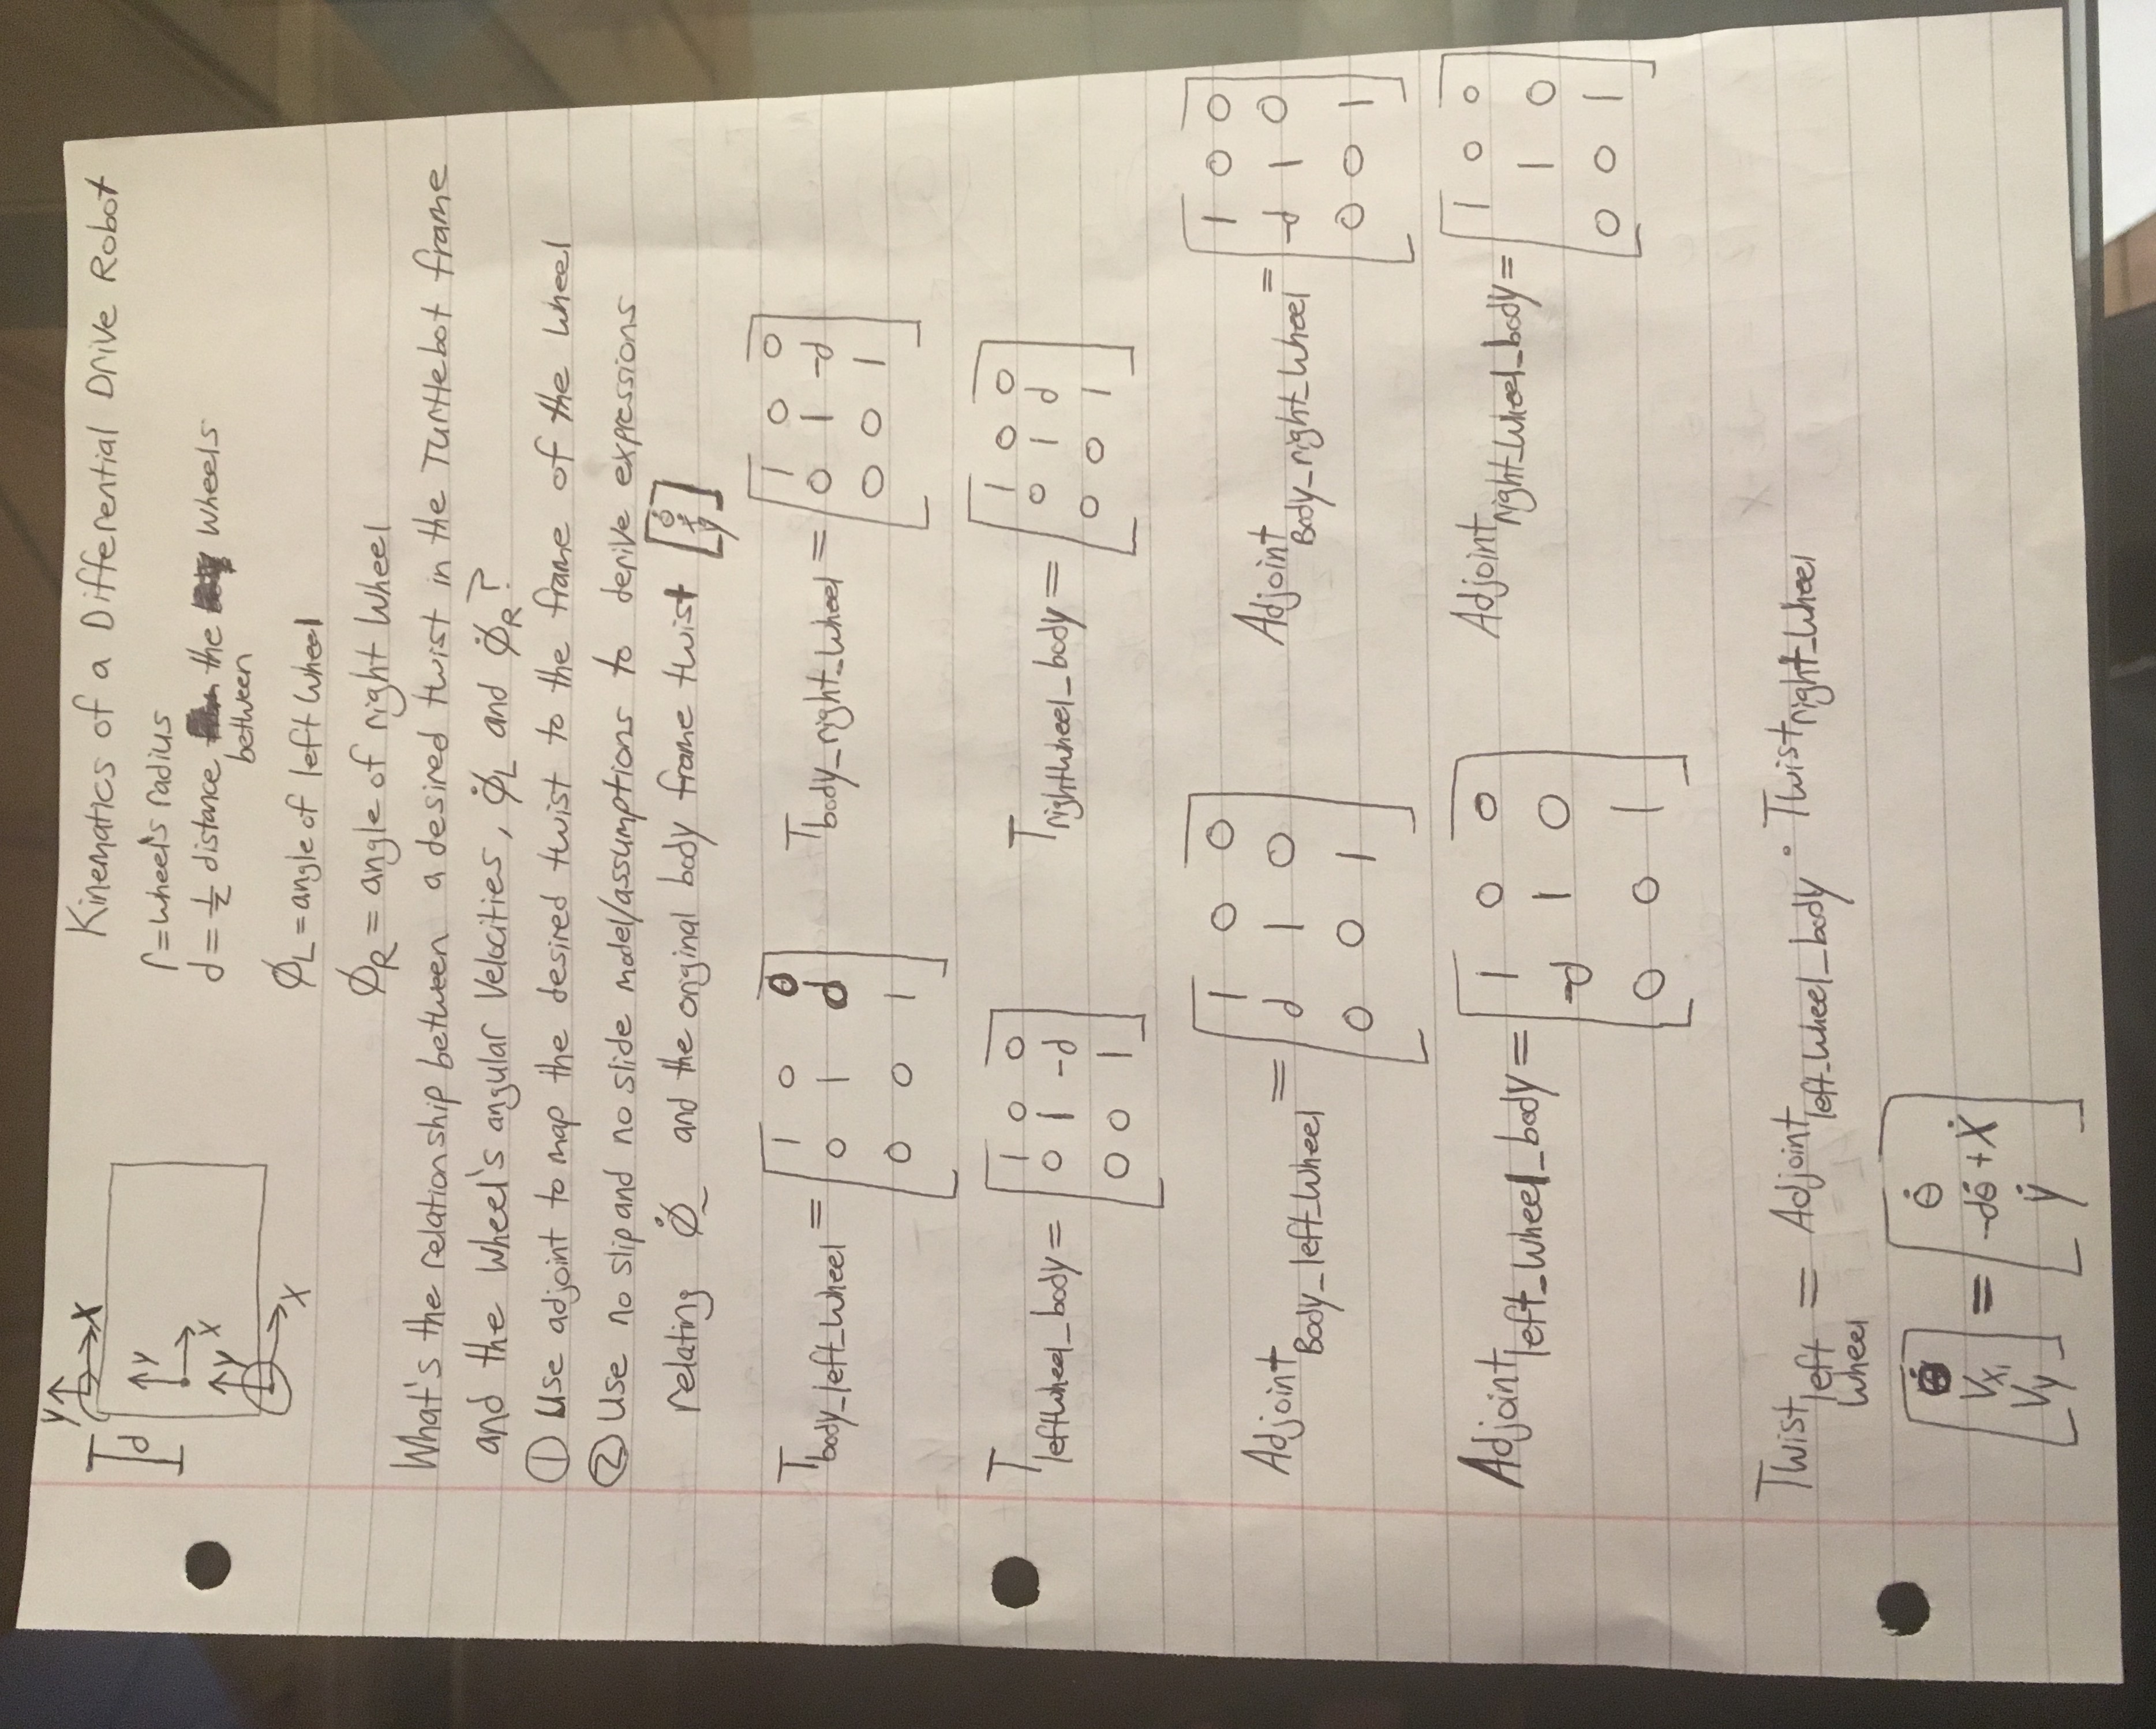 Y
X
d
Y
X
Y
X
Kinematics of a Differential Drive Robot
r = wheel's radius
d = 1/2 distance the wheels
between
ϕL = angle of left wheel
ϕR = angle of right wheel
What's the relationship between a desired twist in the Turtlebot frame
and the wheel's angular velocities, ϕ̇L and ϕ̇R?
① Use adjoint to map the desired twist to the frame of the wheel
② Use no slip and no slide model/assumptions to derive expressions
relating ϕ̇ and the original body frame twist [θ̇ ẋ ẏ]
Tbody_left_wheel = [1 0 0
0 1 d
0 0 1]
Tbody_right_wheel = [1 0 0
0 1 -d
0 0 1]
Tleftwheel_body = [1 0 0
0 1 -d
0 0 1]
Trightwheel_body = [1 0 0
0 1 d
0 0 1]
AdjointBody_left_wheel = [1 0 0
d 1 0
0 0 1]
AdjointBody_right_wheel = [1 0 0
-d 1 0
0 0 1]
Adjointleft_wheel_body = [1 0 0
-d 1 0
0 0 1]
Adjointright_wheel_body = [1 0 0
1 0
0 0 1]
Twistleft wheel = Adjointleft_wheel_body · Twistright_wheel
[θ̇ = [θ̇
Vx, -dθ̇ + ẋ
Vy] ẏ]